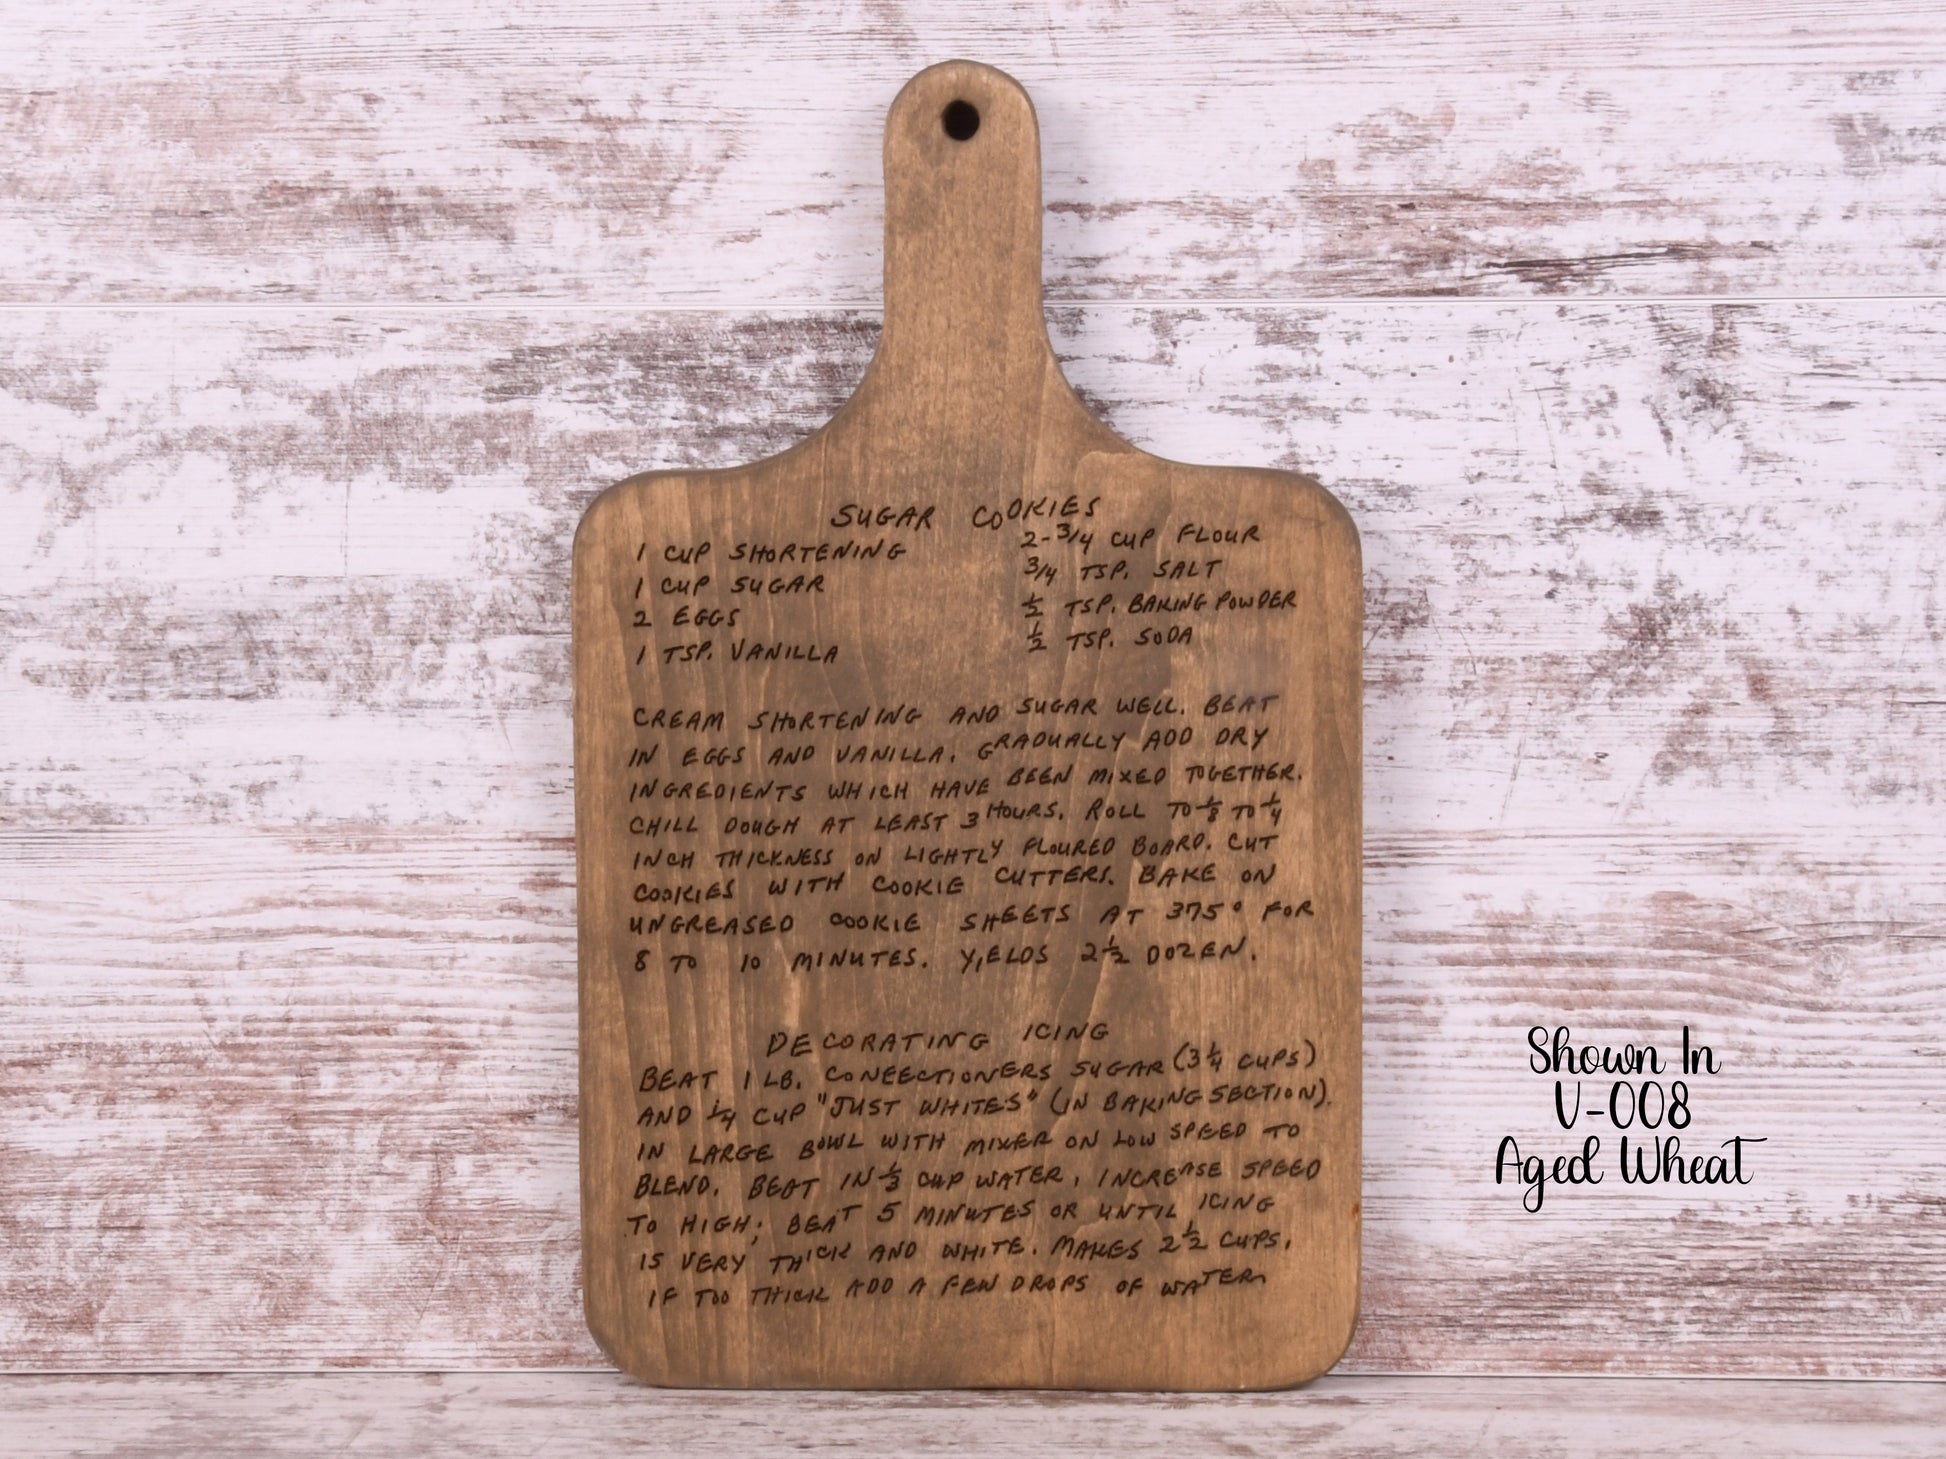 SUGAR COOKIES
1 CUP SHORTENING
1 CUP SUGAR
2 EGGS
1 TSP. VANILLA
2-3/4 CUP FLOUR
3/4 TSP. SALT
1/2 TSP. BAKING POWDER
1/2 TSP. SODA
CREAM SHORTENING AND SUGAR WELL. BEAT
IN EGGS AND VANILLA. GRADUALLY ADD DRY
INGREDIENTS WHICH HAVE BEEN MIXED TOGETHER.
CHILL DOUGH AT LEAST 3 HOURS. ROLL TO 1/8 TO 1/4
INCH THICKNESS ON LIGHTLY FLOURED BOARD. CUT
COOKIES WITH COOKIE CUTTERS. BAKE ON
UNGREASED COOKIE SHEETS AT 375° FOR
8 TO 10 MINUTES. YIELDS 2 1/2 DOZEN.
DECORATING ICING
BEAT 1 LB. CONEECTIONERS SUGAR (3 1/4 CUPS)
AND 1/4 CUP "JUST WHITES" (IN BAKING SECTION).
IN LARGE BOWL WITH MIXER ON LOW SPEED TO
BLEND. BEAT IN 1/3 CUP WATER, INCREASE SPEED
TO HIGH; BEAT 5 MINUTES OR UNTIL ICING
IS VERY THICK AND WHITE. MAKES 2 1/2 CUPS.
IF TOO THICK ADD A FEW DROPS OF WATER
Shown In
V-008
Aged Wheat